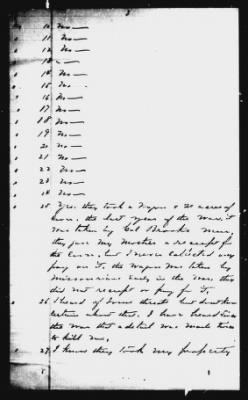 10 No—
11 No—
12 No—
13 —
14 No—
15 No—
16 No—
17 No—
18 No—
19 No—
20 No—
21 No—
22 No—
23 No—
24 No—
25 Yes. they took a Wagon & 20 acres of
corn. the last year of the War. it
was taken by Col Brooks men,
they gave my Mother a receipt for
the corn, but I never collected any
pay on it, the wagon was taken by
Missourians early in the war, they
did not receipt or pay for it.
26 I heard of some threats but dont know
certain about that. I have heard since
the War that a detail was made twice
to kill me.
27 I know they took my property